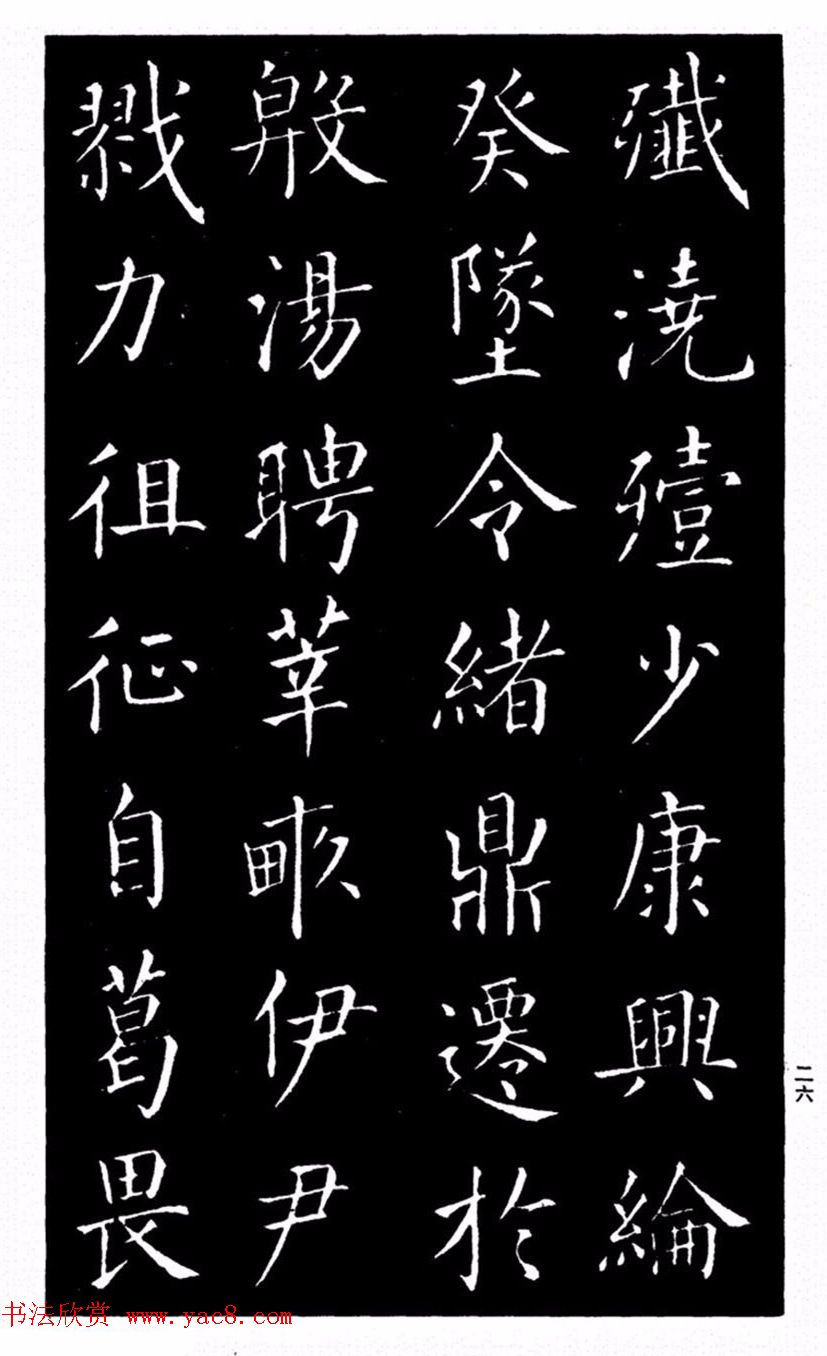 殲澆殪少康興綸
癸墜令緒鼎遷於
殷湯聘莘畋伊尹
戮力徂征自葛畏
二六
书法欣赏 www.yac8.com